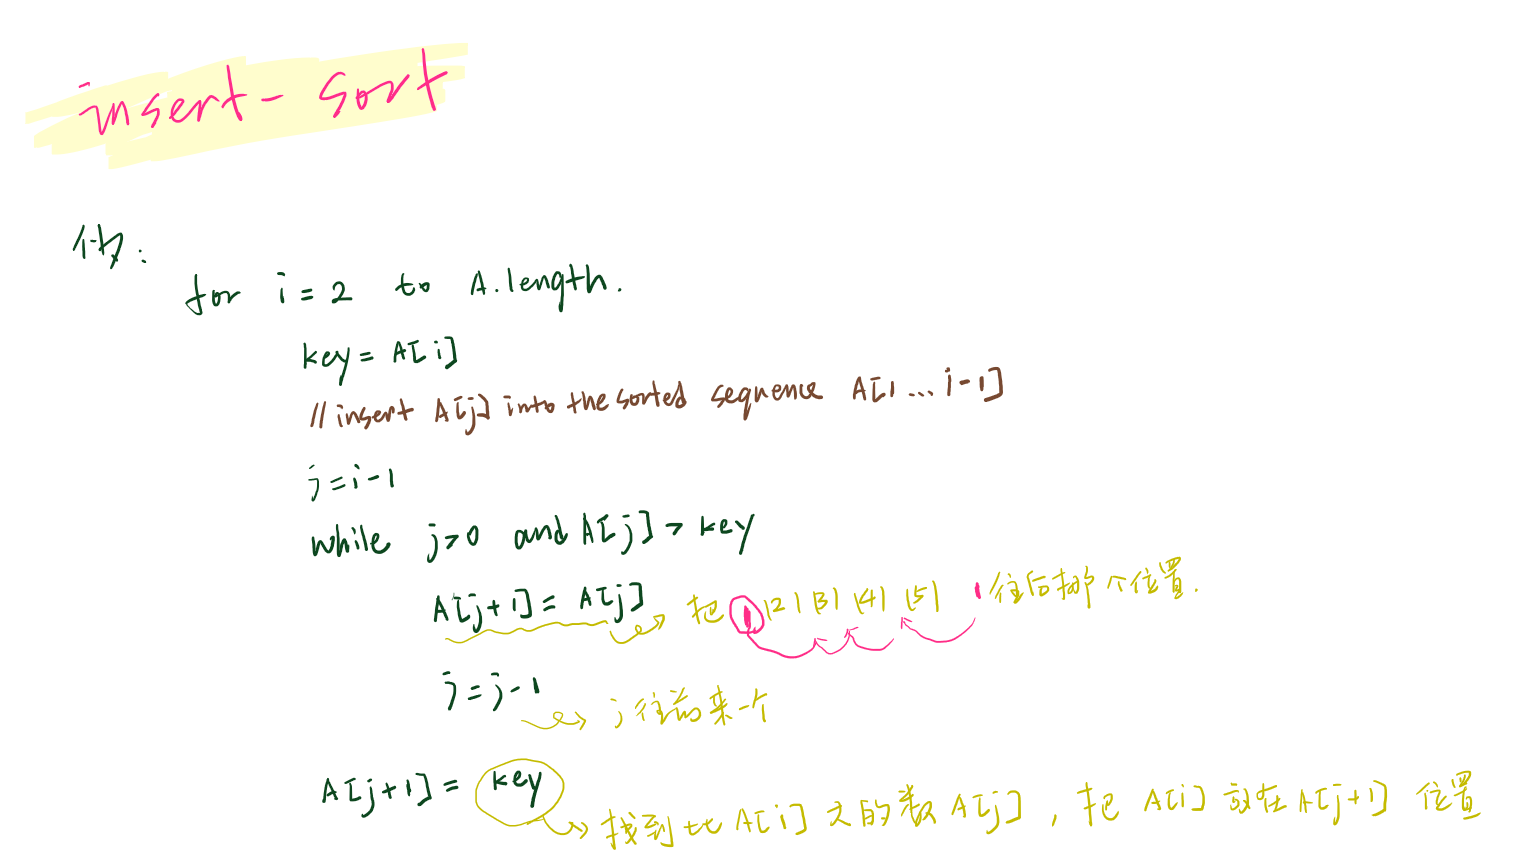 insert-sort
伪:
for i=2 to A.length.
key=A[i]
//insert A[j] into the sorted sequence A[1...i-1]
j=i-1
while j>0 and A[j]>key
A[j+1]=A[j] 把 |2|3|4|5| 1往后挪个位置.
j=j-1 j往前来一个
A[j+1]=key 找到比A[i]大的数A[j], 把A[i]放在A[j+1]位置